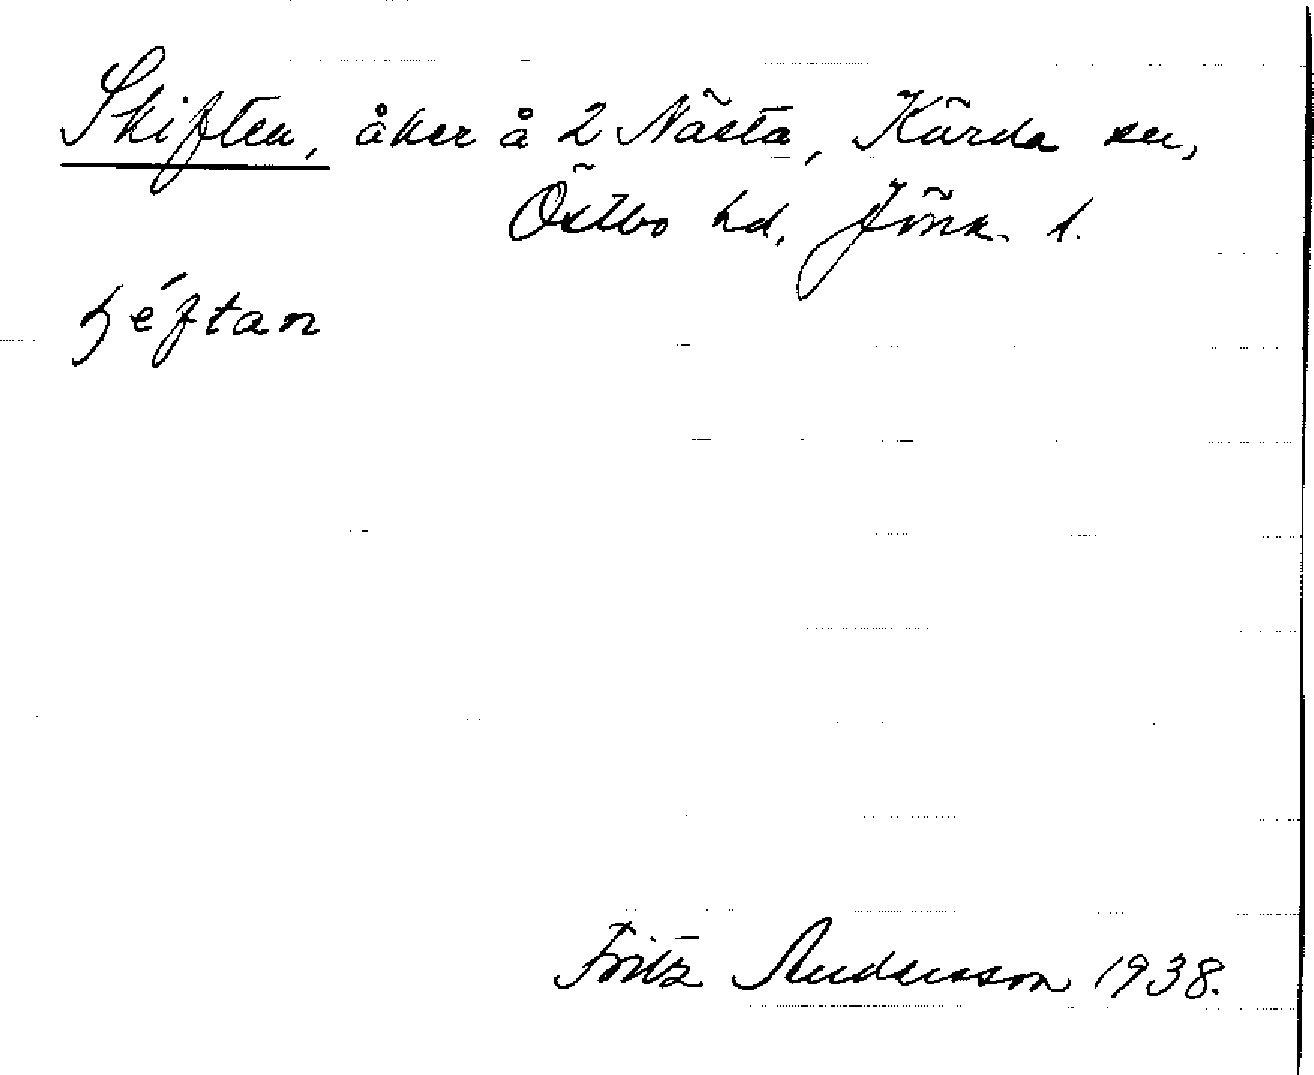 Skiften, åker å 2 Nästa, Kärda sn,
Östbo hd, Jönk. l.
ɧéftan
Fritz Andersson 1938.